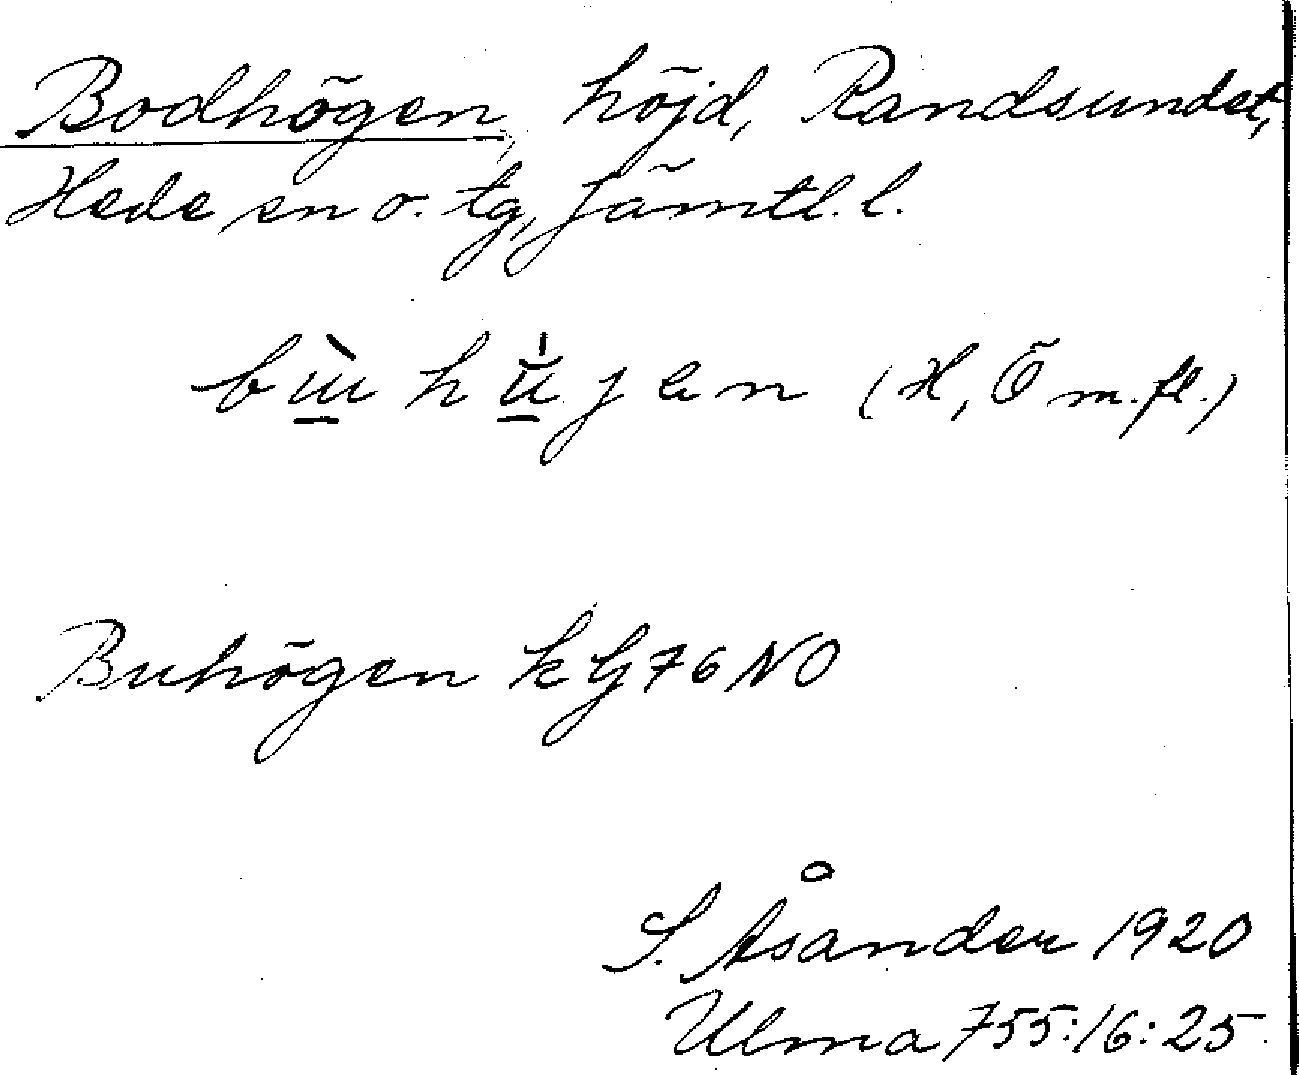 Bodhögen, höjd, Randsundet,
Hede sn o. tg, Jämtl. l.
(H, Ö m. fl.)
Buhögen k G 76 NO
S. Åsander 1920
Ulma 755:16:25.